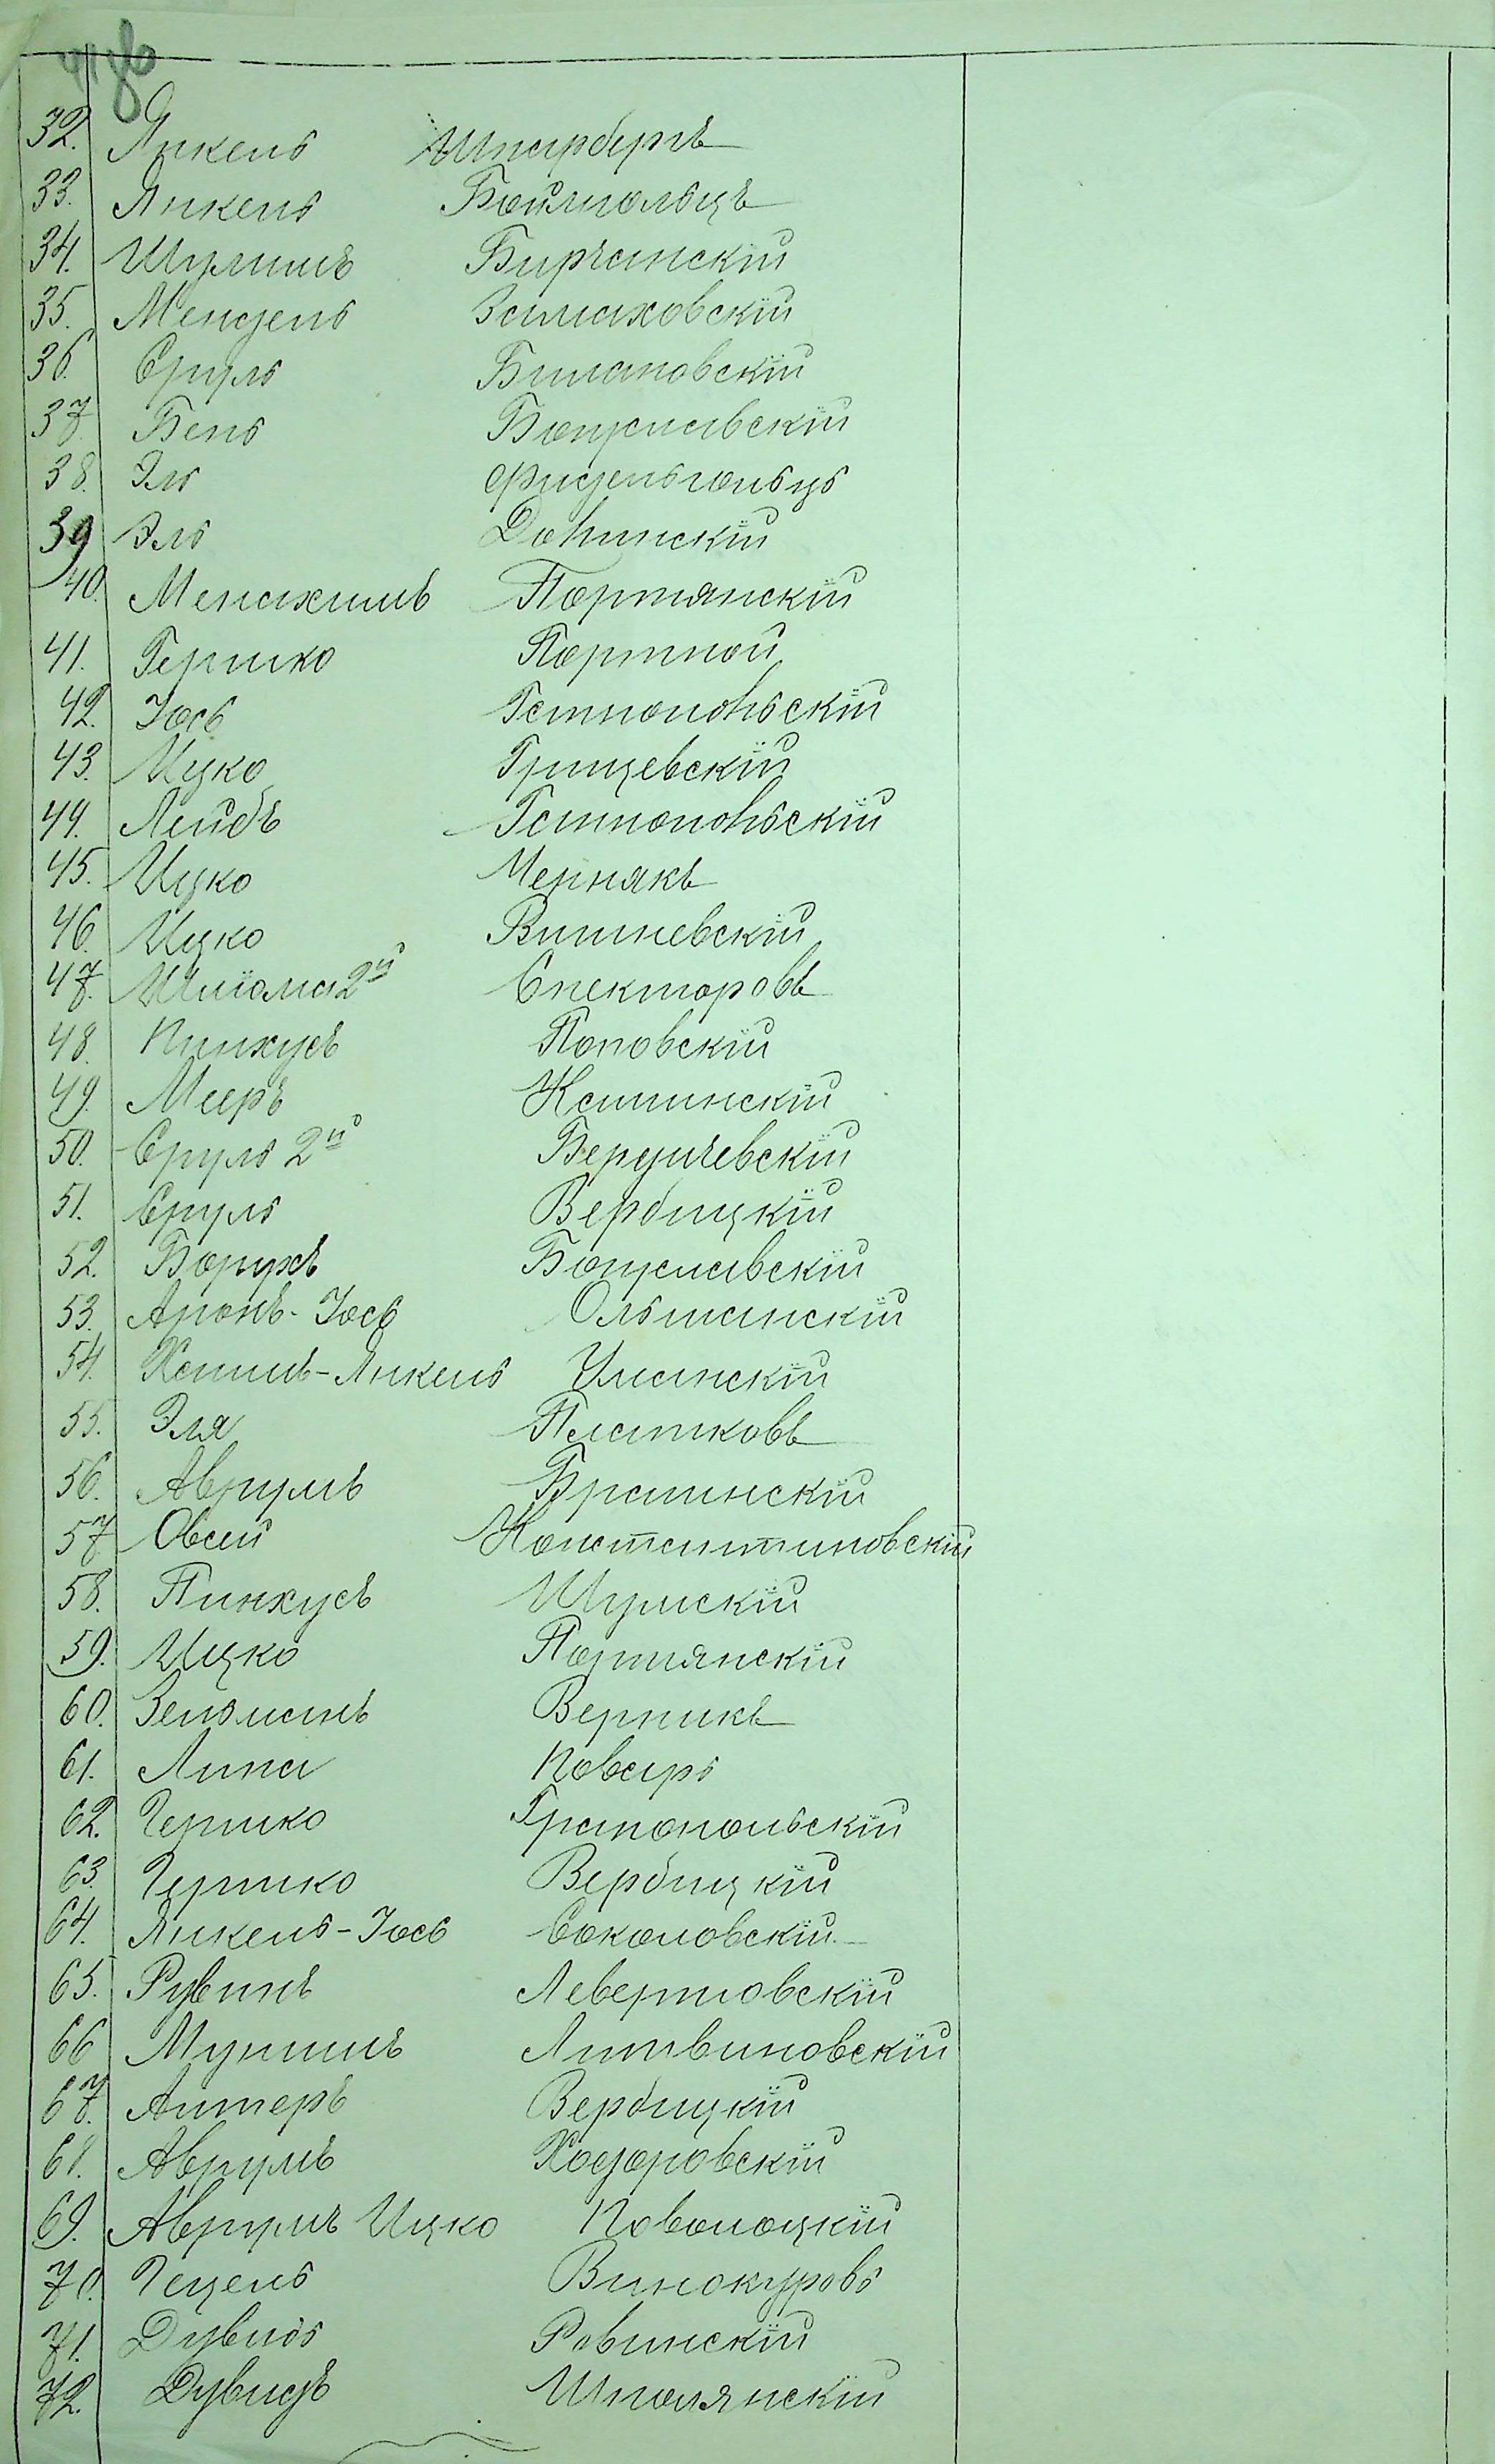 32. Янкель Шпарбергъ
33. Янкель Боймгольцъ
34. Шулимъ Бирчанскій
35. Мендель Замаховскій
36. Сруль Билановскій
37 Бень Богуславскій
38. Эль Фидельгольцъ
39 Эль Долинскій
40. Менахимъ Портянскій
41. Гершко Портной
42. Іось Гайпонольскій
43. Ицко Грицевскій
44. Лейбъ Гайпонольскій
45. Ицко Мерякъ
46. Ицко Вишневскій
47. Шліома 2й Спекторовъ
48. Пинхусъ Поповскій
49. Мееръ Каминскій
50. Сруль 2й Бердичевскій
51. Сруль Вербицкій
52. Борухъ Богуславскій
53. Аронъ-Іось Ольшанскій
54. Хаимъ-Янкель Уманскій
55. Эля Платковъ
56. Аврумъ Браинскій
57 Овсей Константиновскій
58. Пинхусъ Шумскій
59. Ицко Портянскій
60. Зельманъ Верникъ
61. Липа Поваръ
62. Гершко Грановольскій
63. Гершко Вербицкій
64. Янкель-Іось Соколовскій
65. Рувинъ Левертовскій
66 Мунишъ Литвиновскій
67. Алтеръ Вербицкій
68. Аврумъ Ходоровскій
69. Аврумъ Ицко Поволоцкій
70. Гецель Винокуровъ
71. Дувидъ Ровинскій
72. Дувидъ Шполянскій